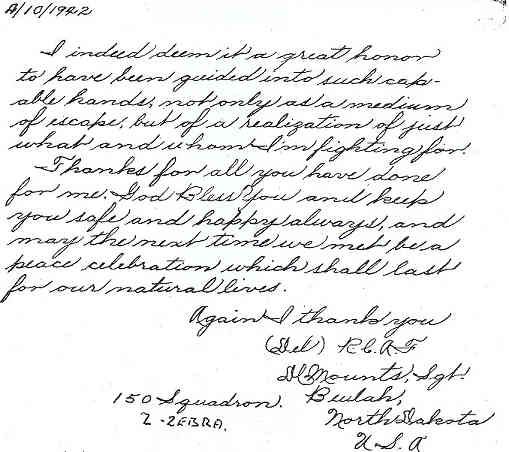 8/10/1942
I indeed deem it a great honor
to have been guided into such cap-
able hands, not only as a medium
of escape, but of a realization of just
what and whom I'm fighting for.
Thanks for all you have done
for me. God Bless You and keep
you safe and happy always, and
may the next time we met be a
peace celebration which shall last
for our natural lives.
Again I thank you
(Del) R.C.A.F
Mounts, Sgt.
150 Squadron. Beulah,
Z-ZEBRA. North Dakota
U.S.A